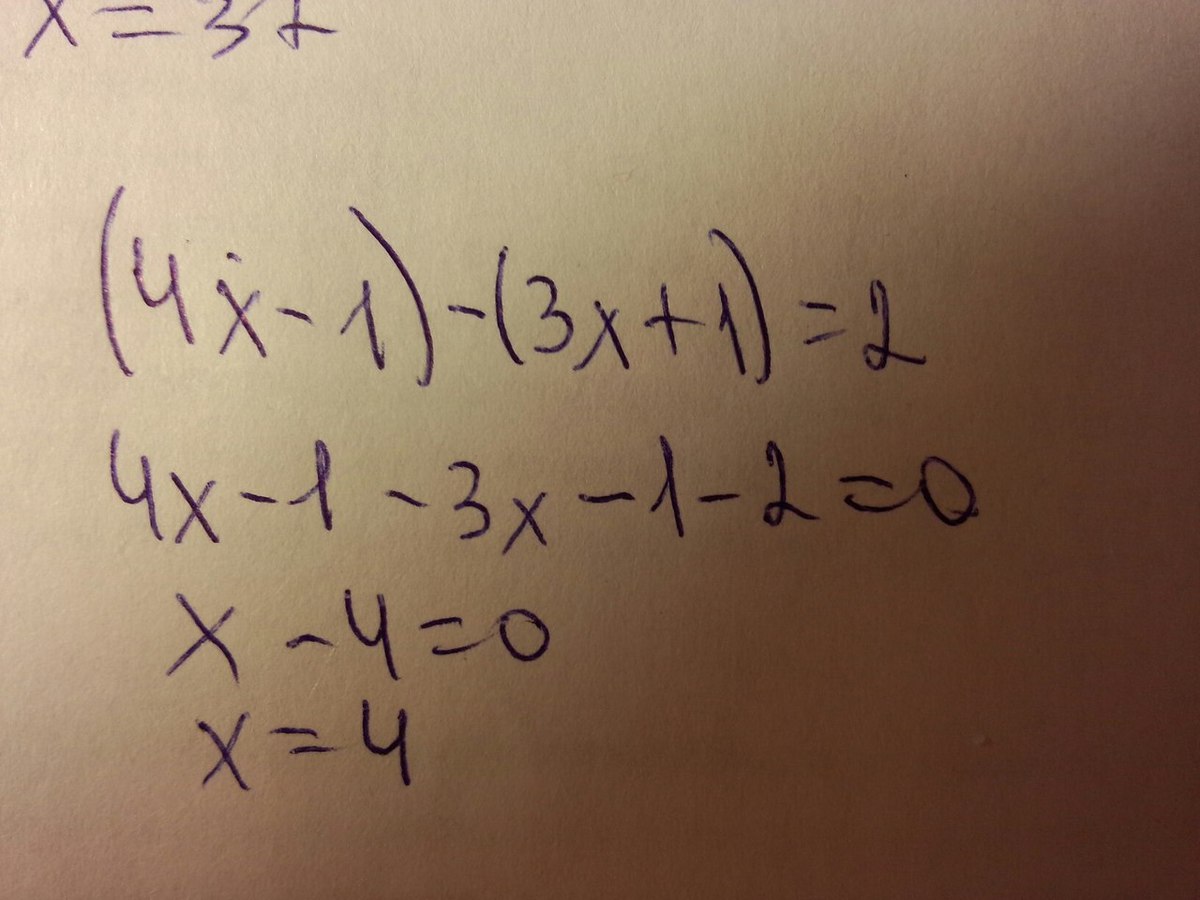 (4x-1)-(3x+1)=2
4x-1-3x-1-2=0
x-4=0
x=4